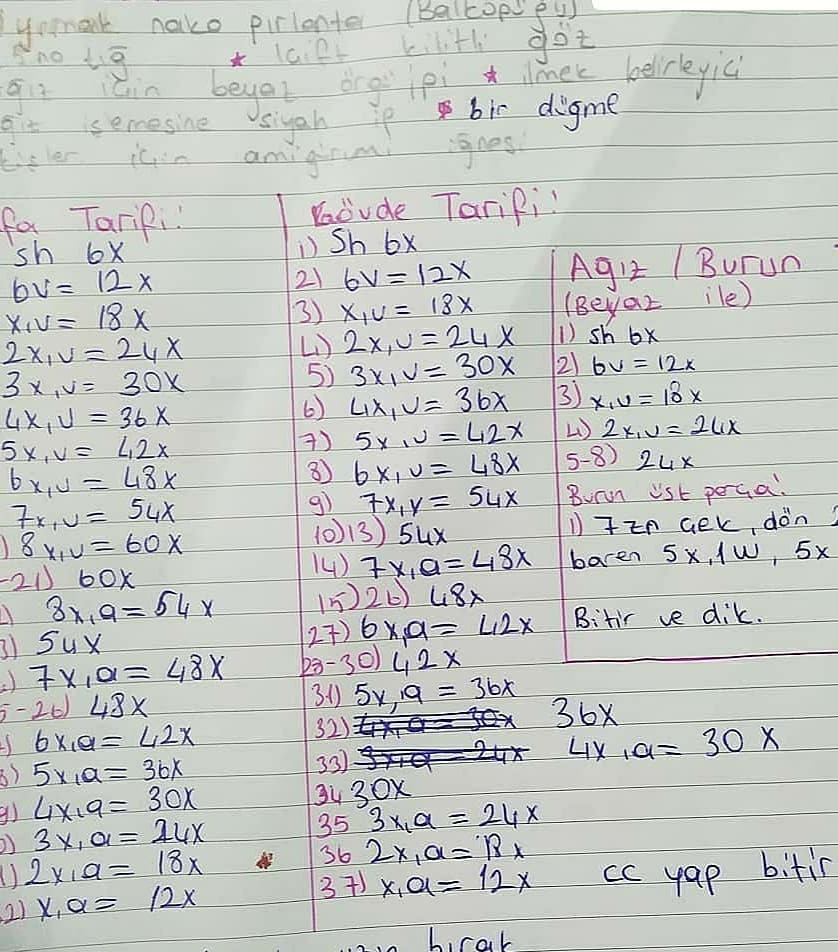 yumak nako pırlanta (Balköpüğü)
5 no tığ * 1 çift kilitli göz
ağız için beyaz örgü ipi * ilmek belirleyici
ağız işlemesine siyah ip * bir düğme
için amigirumi iğnesi
Tarifi:
sh 6x
6v = 12x
x,v = 18x
2x,v = 24x
3x,v = 30x
4x,v = 36x
5x,v = 42x
6x,v = 48x
7x,v = 54x
) 8x,v = 60x
-21) 60x
) 8x,a = 54x
3) 54x
) 7x,a = 48x
5-26) 48x
) 6x,a = 42x
8) 5x,a = 36x
9) 4x,a = 30x
0) 3x,a = 24x
1) 2x,a = 18x
2) x,a = 12x
Gövde Tarifi:
1) Sh 6x
2) 6v = 12x
3) x,v = 18x
4) 2x,v = 24x
5) 3x,v = 30x
6) 4x,v = 36x
7) 5x,v = 42x
8) 6x,v = 48x
9) 7x,v = 54x
10)13) 54x
14) 7x,a = 48x
15)26) 48x
27) 6x,a = 42x
28-30) 42x
31) 5x,a = 36x
32) 4x,a = 30x 36x
33) 3x,a = 24x 4x,a = 30x
34 30x
35 3x,a = 24x
36 2x,a = 18x
37) x,a = 12x cc yap bitir
Ağız / Burun
(Beyaz ile)
1) sh 6x
2) 6v = 12x
3) x,v = 18x
4) 2x,v = 24x
5-8) 24x
Burun üst parça:
1) 7zn çek, dön 2
baren 5x,1w, 5x
Bitir ve dik.
bırak